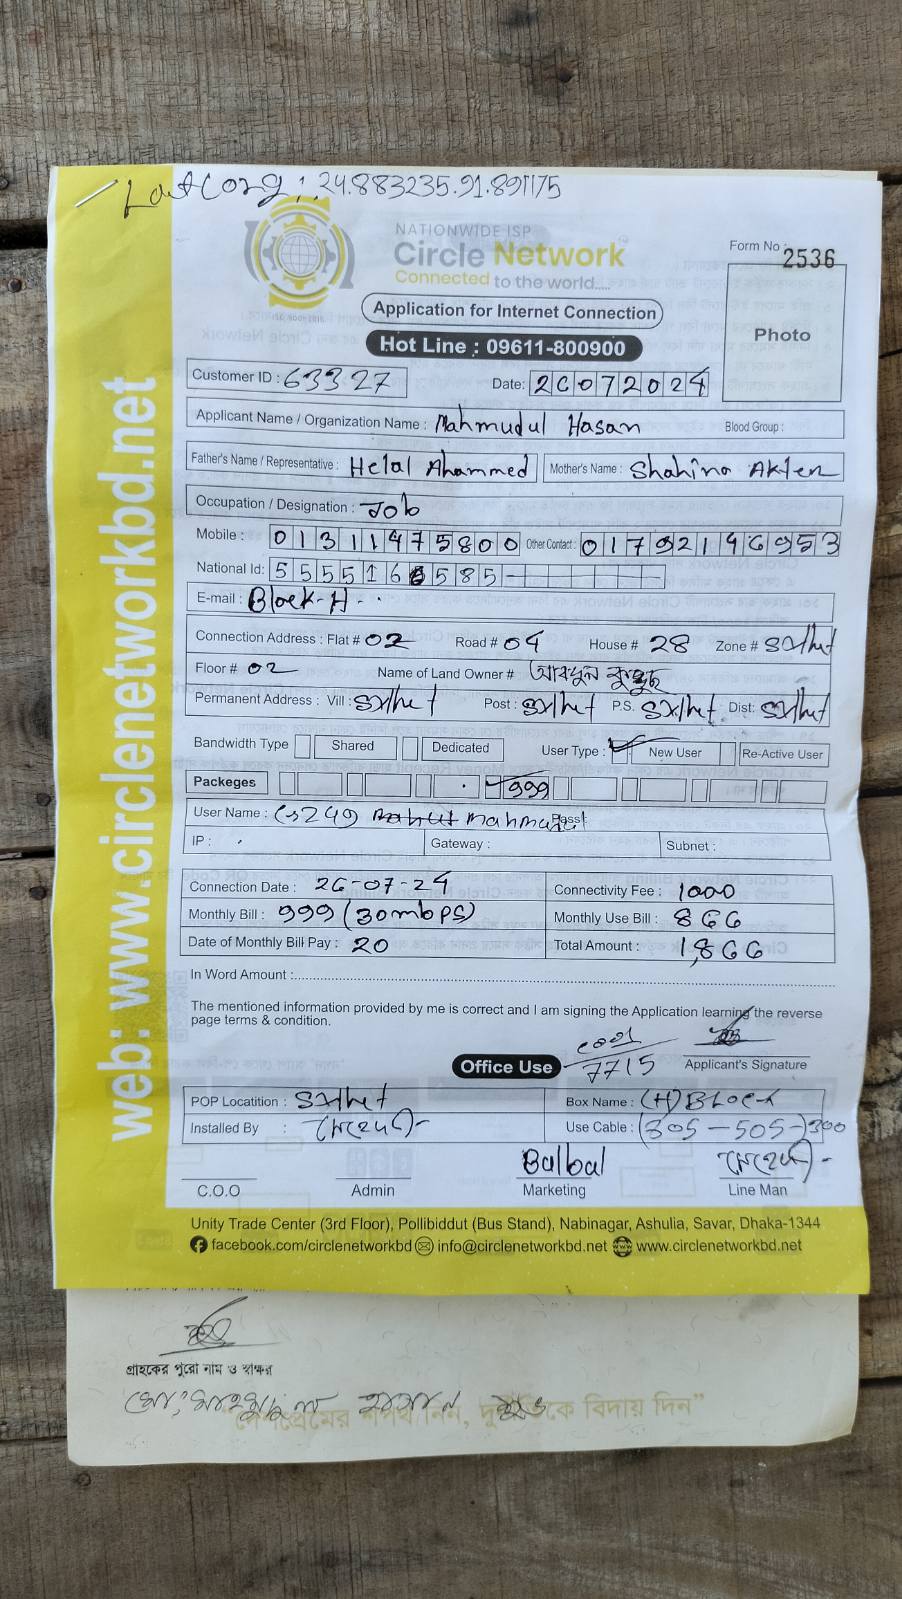 24.883235.91.891175
NATIONWIDE ISP
Circle Network
Connected to the world....
ISO 9001-2015
Form No : 2536
Application for Internet Connection
Photo
Hot Line : 09611-800900
Customer ID : 63327 Date: 26072024
Applicant Name / Organization Name : Mahmudul Hasan Blood Group :
Father's Name / Representative : Helal Ahammed Mother's Name : Shahina Akter
Occupation / Designation : Job
Mobile : 01311475800 Other Contact : 01792146953
National Id: 555516 585-
E-mail : Block-H
Connection Address : Flat # 02 Road # 04 House # 28 Zone # Sylhet
Floor # 02 Name of Land Owner # আবদুল কুদ্দুছ
Permanent Address : Vill : Sylhet Post : Sylhet P.S. Sylhet Dist: Sylhet
Bandwidth Type Shared Dedicated User Type : New User Re-Active User
Packeges 999
User Name : Cs249 Mahmudul Pass:
IP : Gateway : Subnet :
Connection Date : 26-07-24 Connectivity Fee : 1000
Monthly Bill : 999 (30mbps) Monthly Use Bill : 866
Date of Monthly Bill Pay : 20 Total Amount : 1,866
In Word Amount :
The mentioned information provided by me is correct and I am signing the Application learning the reverse
page terms & condition.
Office Use 7715 Applicant's Signature
POP Locatition : Sylhet Box Name : (H) Block
Installed By : মেহেদী- Use Cable : (305-505-)300
Balbal মেহেদী-
C.O.O Admin Marketing Line Man
Unity Trade Center (3rd Floor), Pollibiddut (Bus Stand), Nabinagar, Ashulia, Savar, Dhaka-1344
facebook.com/circlenetworkbd info@circlenetworkbd.net www.circlenetworkbd.net
web: www.circlenetworkbd.net
গ্রাহকের পুরো নাম ও স্বাক্ষর
মো: মাহমুদুল হাসান
"দেশপ্রেমের শপথ নিন, দুর্নীতিকে বিদায় দিন"